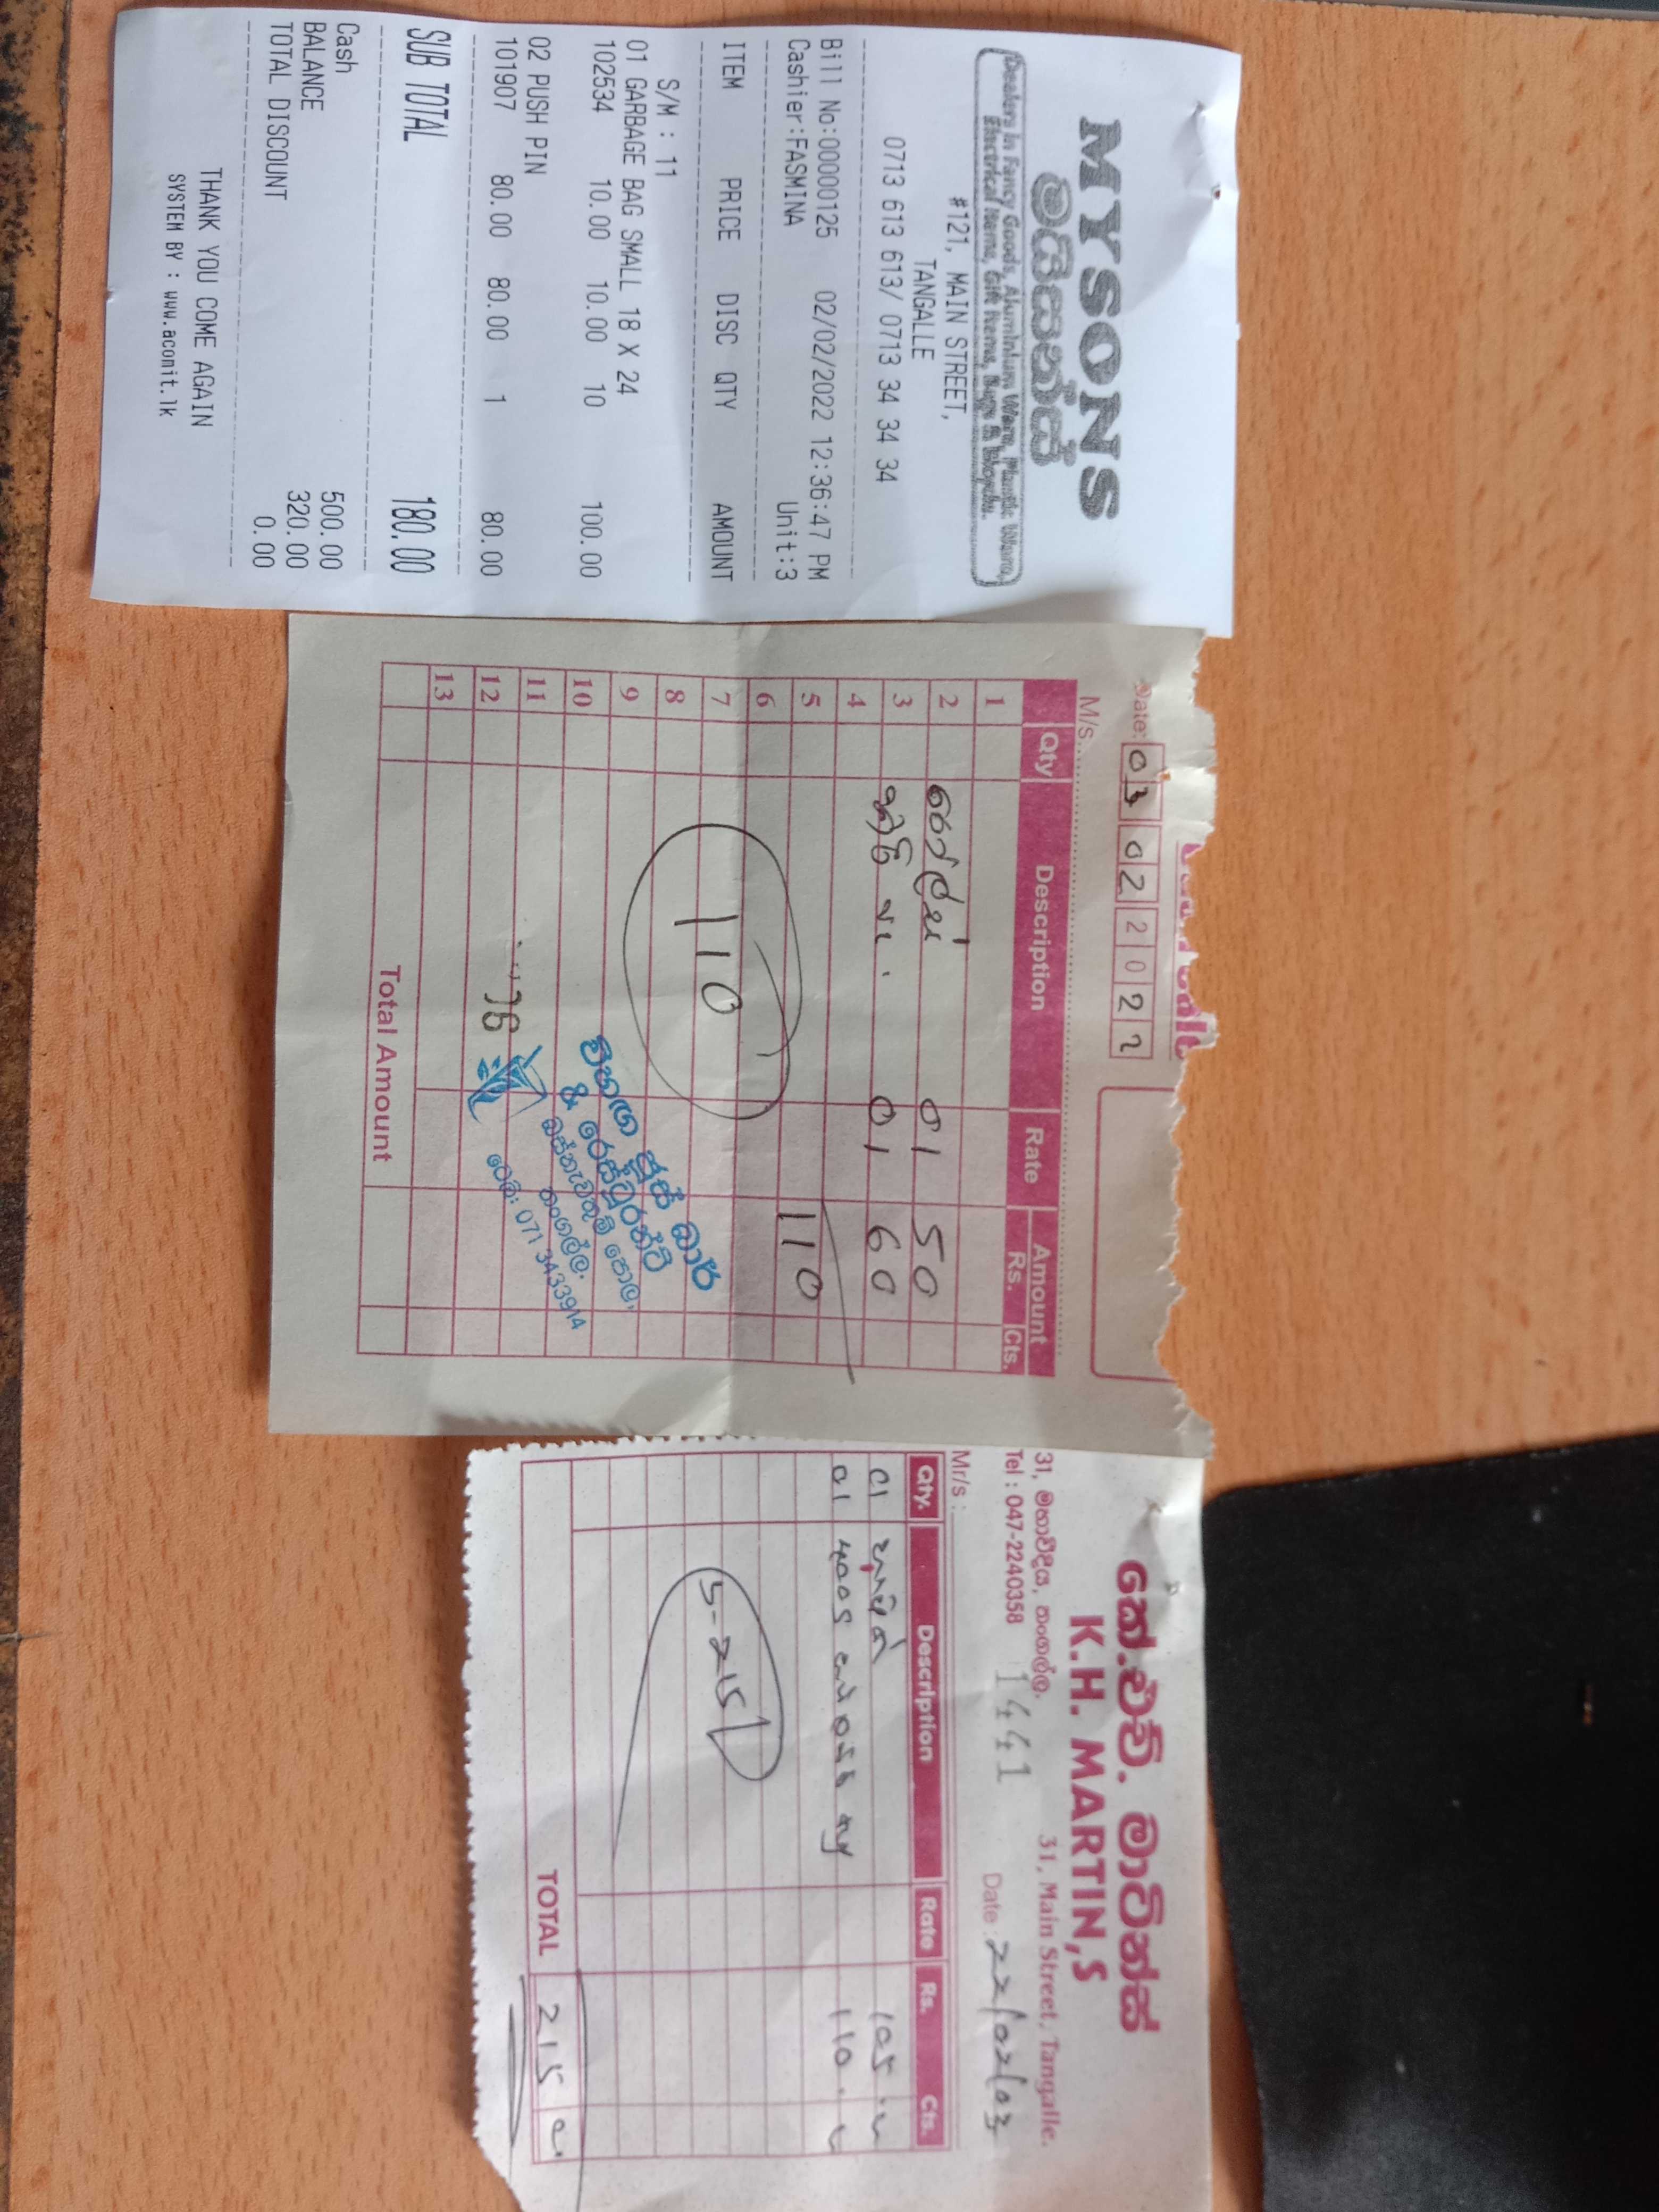 MYSONS
මයිසන්ස්
Dealers in Fancy Goods, Aluminium Ware, Plastic Ware,
Electrical Items, Gift Items, Bags &
#121, MAIN STREET,
TANGALLE
0713 613 613/ 0713 34 34 34
Bill No:00000125 02/02/2022 12:36:47 PM
Cashier:FASMINA Unit:3
ITEM PRICE DISC QTY AMOUNT
S/M : 11
01 GARBAGE BAG SMALL 18 X 24
102534 10.00 10.00 10 100.00
02 PUSH PIN
101907 80.00 80.00 1 80.00
SUB TOTAL 180.00
Cash 500.00
BALANCE 320.00
TOTAL DISCOUNT 0.00
THANK YOU COME AGAIN
SYSTEM BY : www.acomit.lk
Date: 03 02 2022
M/s.
Qty Description Rate Amount
Rs. Cts.
1
2 රෝල්ස් 01 50
3 01 60
4
5 110
6
7 110
8
9
10
11
12
13
Total Amount
විහඟ ජූස් බාර්
& රෙස්ටුරන්ට්
බස්නැවතුම් පොල,
තංගල්ල.
ටෙලි: 071 3433914
කේ.එච්. මාටින්ස්
K.H. MARTIN,S
31, මහාවීදිය, තංගල්ල. 31, Main Street, Tangalle.
Tel : 047-2240358 1441 Date : 22/02/03
Mr/s :
Qty. Description Rate Rs. Cts.
01 105
01 400g 110
5-215/
TOTAL 215